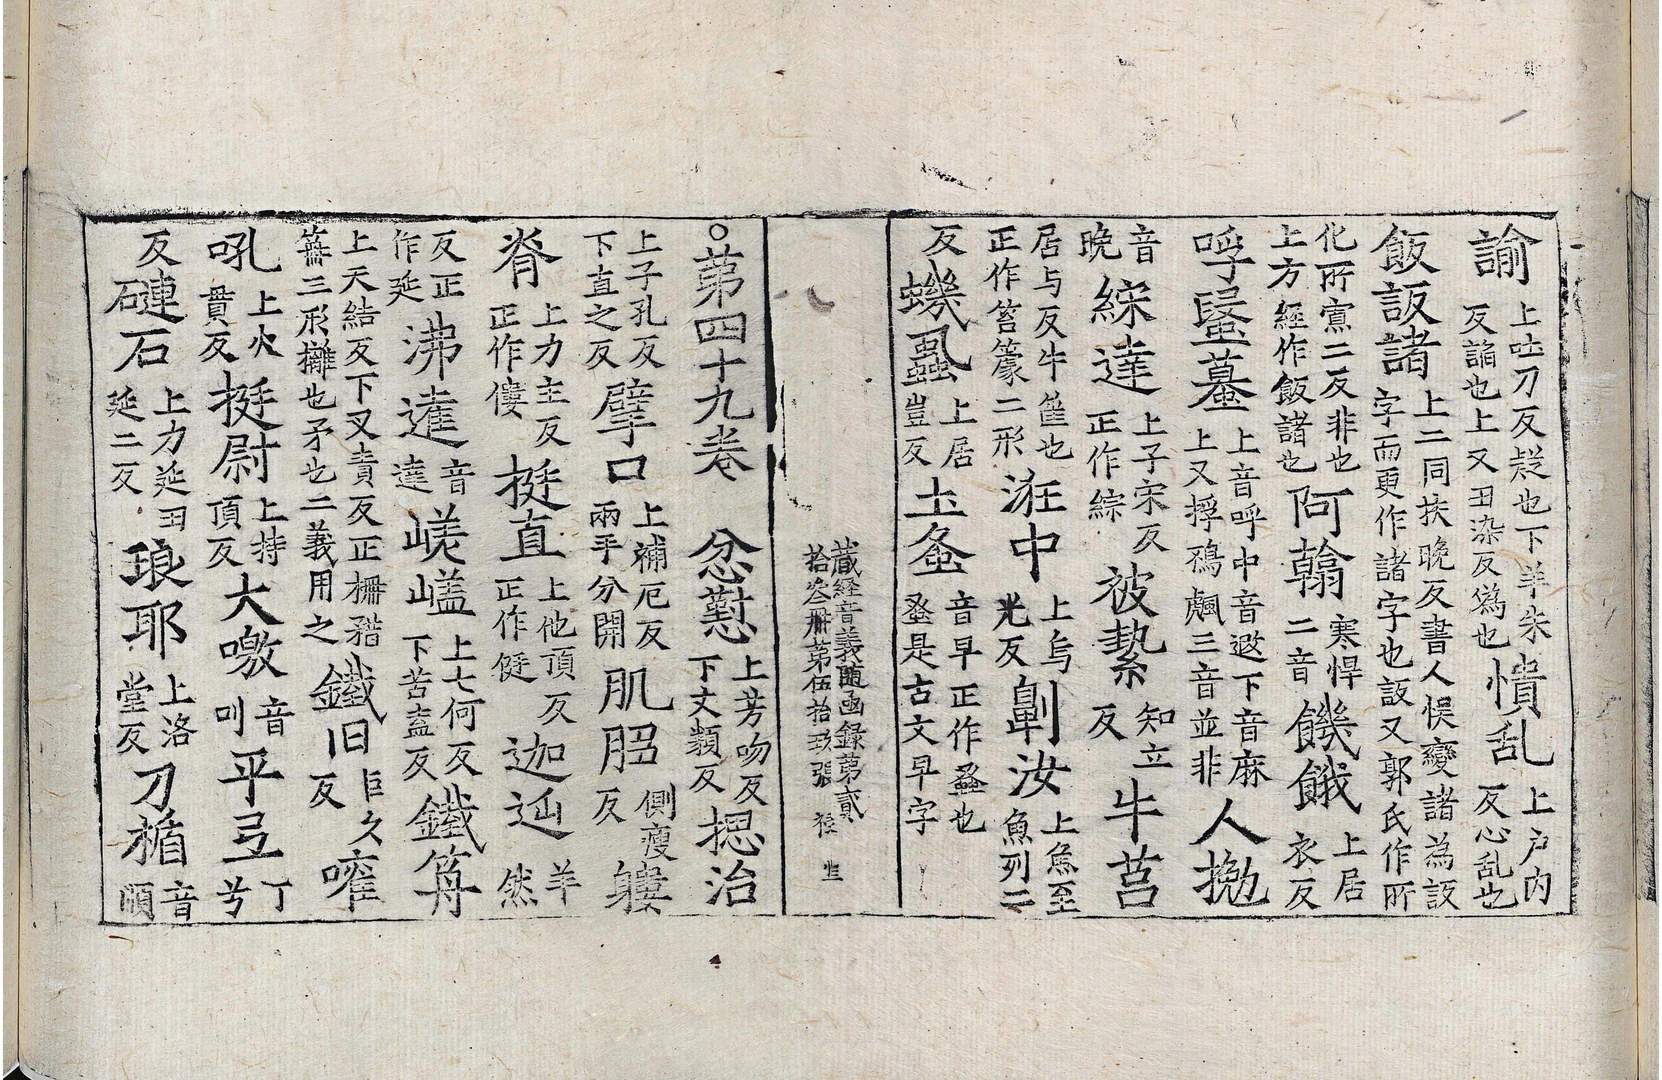 諭上吐刀反疑也下羊朱反諂也上又丑染反為也憒乱上戶內反心乱也
飯䛀諸上二同扶晚反書人悮變諸為䛀字而更作諸字也䛀又郭氏作所
化所㝈二反非也上方經作飯諸也阿翰寒悍二音饑餓上居衣反
呼䘇蟇上音呼中音遐下音麻上又捊鴉飆三音並非人㧾
音晚綵達上子宋反正作綜被縶知立反牛莒
居与反牛筐也正作筥篆二形汪中上烏光反劓汝上魚至魚列二
反蟣虱上居豈反土蚤音早正作蚤也蚤是古文早字
藏經音義隨函錄第貳
拾叁冊第伍拾玖張
○第四十九卷 忿懟上芳吻反下文類反揔治
上子孔反下直之反擘口上補厄反兩手分開肌䏔側瘦反軁
脊上力主反正作僂挺直上他頂反正作侹迦𨒂羊然
反正作延沸達音達嵯㠍上七何反下苦盍反鐵䇯
上天結反下叉責反正柵矠䈰三形㩍也矛也二義用之鐵臼巨久反㗫
吼上火貫反挺尉上持頂反大噭音叫平𢎞丁兮
反磏石上力延丑延二反琅耶上洛堂反刀楯音順